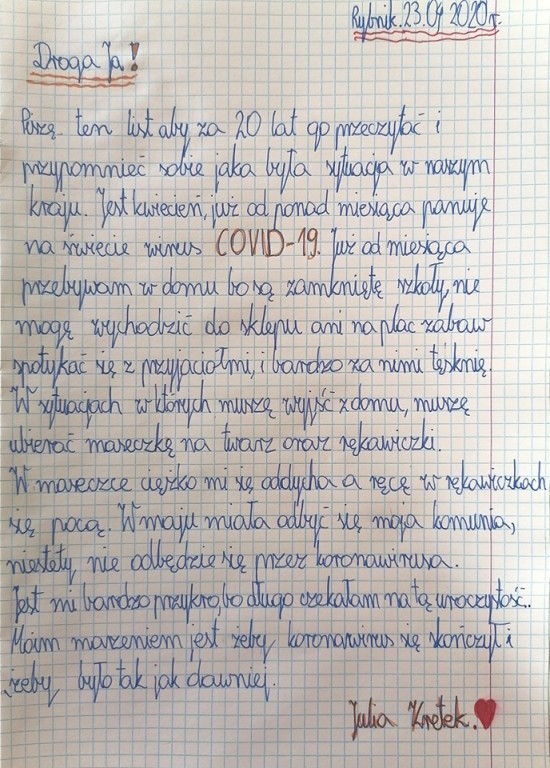 Rybnik.23.04 2020r.
Droga Ja!
Piszę ten list aby za 20 lat go przeczytać i
przypomnieć sobie jaka była sytuacja w naszym
kraju. Jest kwiecień, już od ponad miesiąca panuje
na świecie wirus COVID-19. Już od miesiąca
przebywam w domu bo są zamknięte szkoły, nie
mogę wychodzić do sklepu ani na plac zabaw
spotykać się z przyjaciółmi, i bardzo za nimi tęsknię.
W sytuacjach w których muszę wyjść z domu, muszę
ubierać maseczkę na twarz oraz rękawiczki.
W maseczce ciężko mi się oddycha a ręce w rękawiczkach
się pocą. W maju miała odbyć się moja komunia,
niestety nie odbędzie się przez koronawirusa.
Jest mi bardzo przykro, bo długo czekałam na tą uroczystość.
Moim marzeniem jest żeby koronawirus się skończył i
żeby było tak jak dawniej.
Julia Kretek.